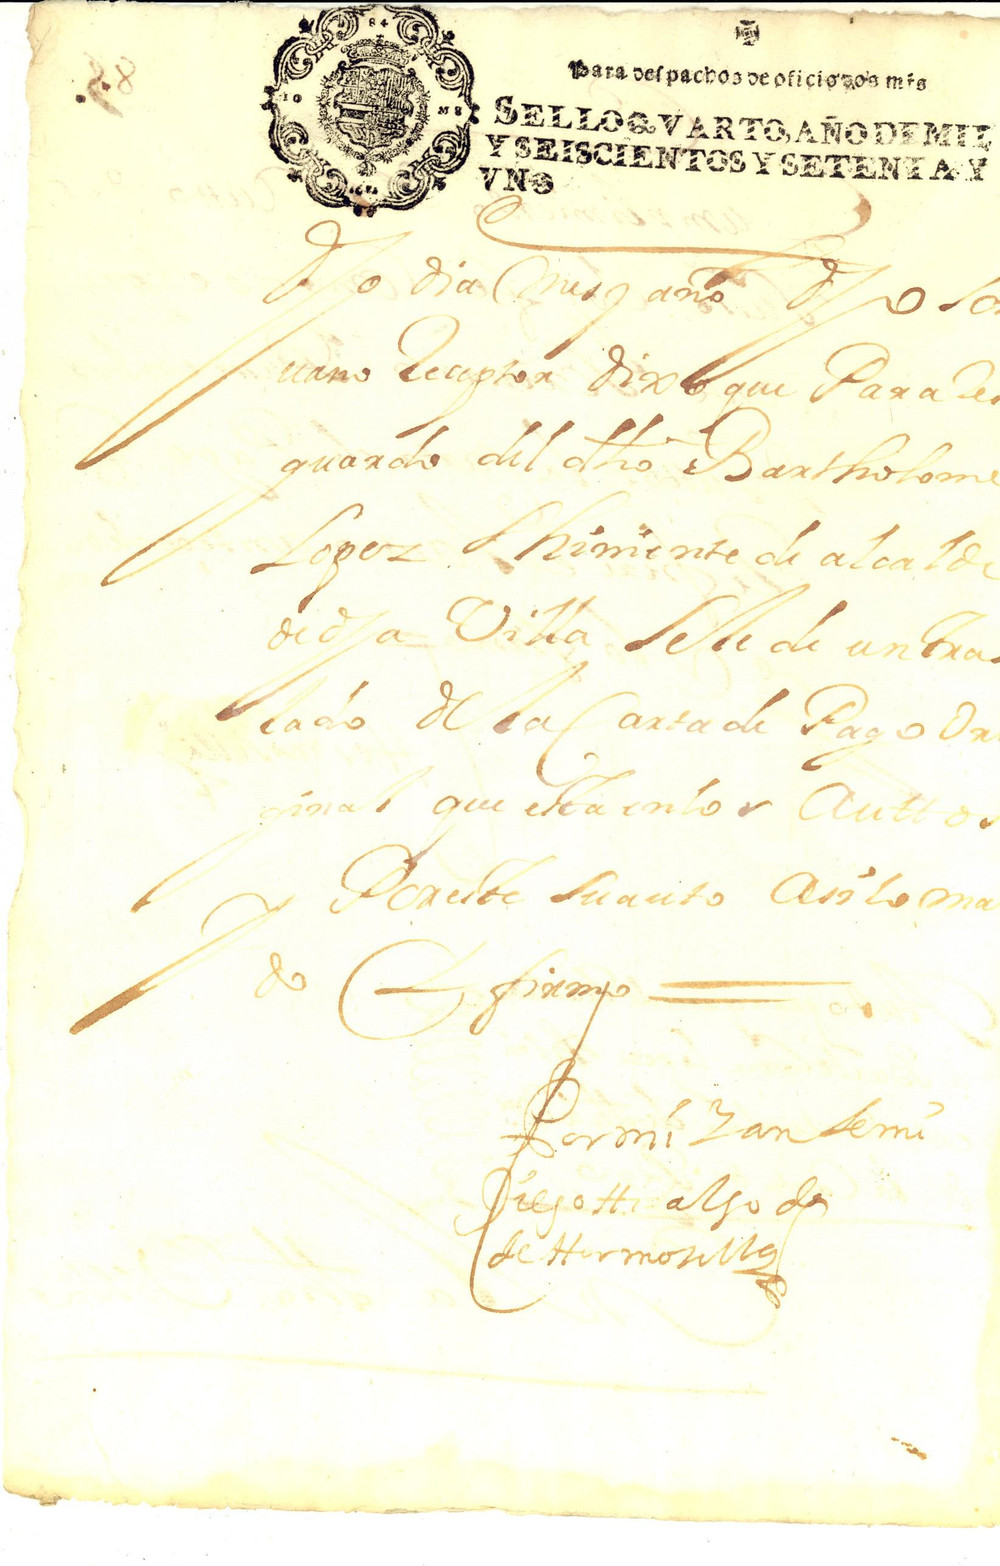 84
10 MS
Para despachos de oficio dos mrs
SELLO QVARTO, AÑO DE MIL
Y SEISCIENTOS Y SETENTA Y
VNO
dho dia mes y año dho
uano Receptor dixo que Para Res
guardo del dho Bartholome
Lopez thiniente de alcalde
de dha Villa se le de un tras
lado de la Carta de Pago Ori
ginal que esta en los Auttos
Por este su auto Assi lo man
do y firmo
Por mi y ante mi
Diego Hidalgo
de Hermosilla